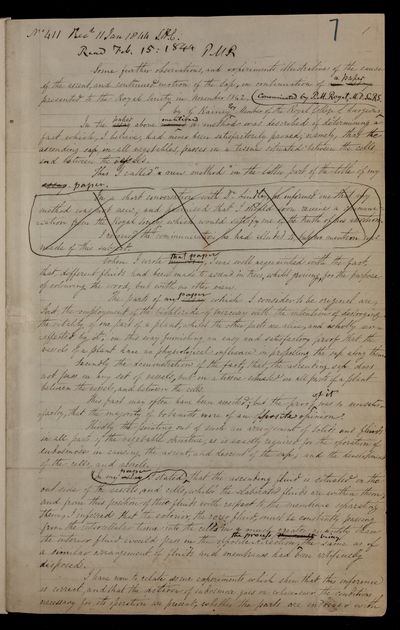 No 411 Recd 11 Jan 1844 S.H.C. 7
Read Feb. 15: 1844 P.M.R
Some further observations, and experiments illustrative of the cause
of the ascent and continued motion of the Sap; in continuation of a paper
presented to the Royal Society in November 1842. Communicated by P.M. Roget, M.D. Sec R.S.
by G. Rainey Esq Member of the Royal College of Surgeons
In the paper above mentioned a method was described of determining a
fact which, I believe, had never been satisfactorily proved; namely, that the
ascending sap, in all vegetables, passes in a tissue situated between the cells
and between the vessels.
This I called "a new method" in the latter part of the title of my
paper.
In a short conversation with Dr he informed me that the
method was not new, and promised that I should soon receive a commu
nication from the Royal Society which would of the truth of his
I received the communication he had alluded to but no mention was
made of this subject.
When I wrote that paper, I was well acquainted with the fact,
that different fluids had been made to ascend in trees, whilst growing, for the purpose
of colouring the wood, but with no other view.
The parts of my paper which I consider to be original are,
First the employment of the bichloride of mercury with the intention of destroying
the vitality of one part of a plant, whilst the other parts are alive, and wholly un-
affected by it; in this way furnishing an easy and satisfactory proof that the
vessels of a plant have no physiological influence in propelling the sap along them
Secondly the demonstration of the fact, that the ascending sap does
not pass in any set of vessels, but in a tissue situated in all parts of a plant
between the vessels, and between the cells.
This fact may often have been asserted; but the proof of it was so unsatis-
factory, that the majority of botanists were of an opposite opinion.
Thirdly the pointing out of such an arrangement of solids and fluids,
in all parts of the vegetable structure, as is exactly required for the operation of
endosmose in causing the ascent, and descent of the sap, and the development
of the cells, and vessels.
In my paper I stated, that the ascending fluid is situated on the
out side of the vessels and cells, whilst the elaborated fluids are within them;
and from this position of these fluids with respect to the membrane separating
them, I inferred that the exterior, the rarer fluid, must be constantly passing
from the intercellular tissue into the cells in a much greater quantity than
the interior fluid would pass in the opposite direction, the process being the same as if
a similar arrangement of fluids and membranes had been artificially
disposed.
I have now to relate some experiments which shew that this inference
is correct, and that the action of endosmose goes on whenever the conditions
necessary for its operation are present, whether the parts are in